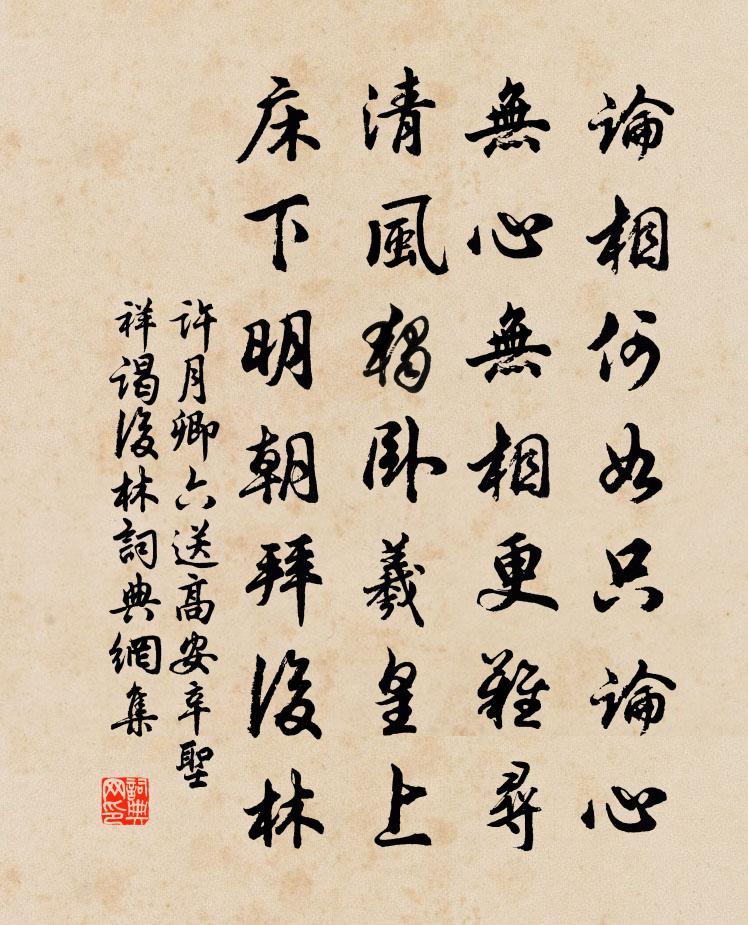 論相何如只論心
無心無相更難尋
清風獨臥羲皇上
床下明朝拜後林
許月卿六送高安辛聖
祥謁後林詞典網集
詞典網印